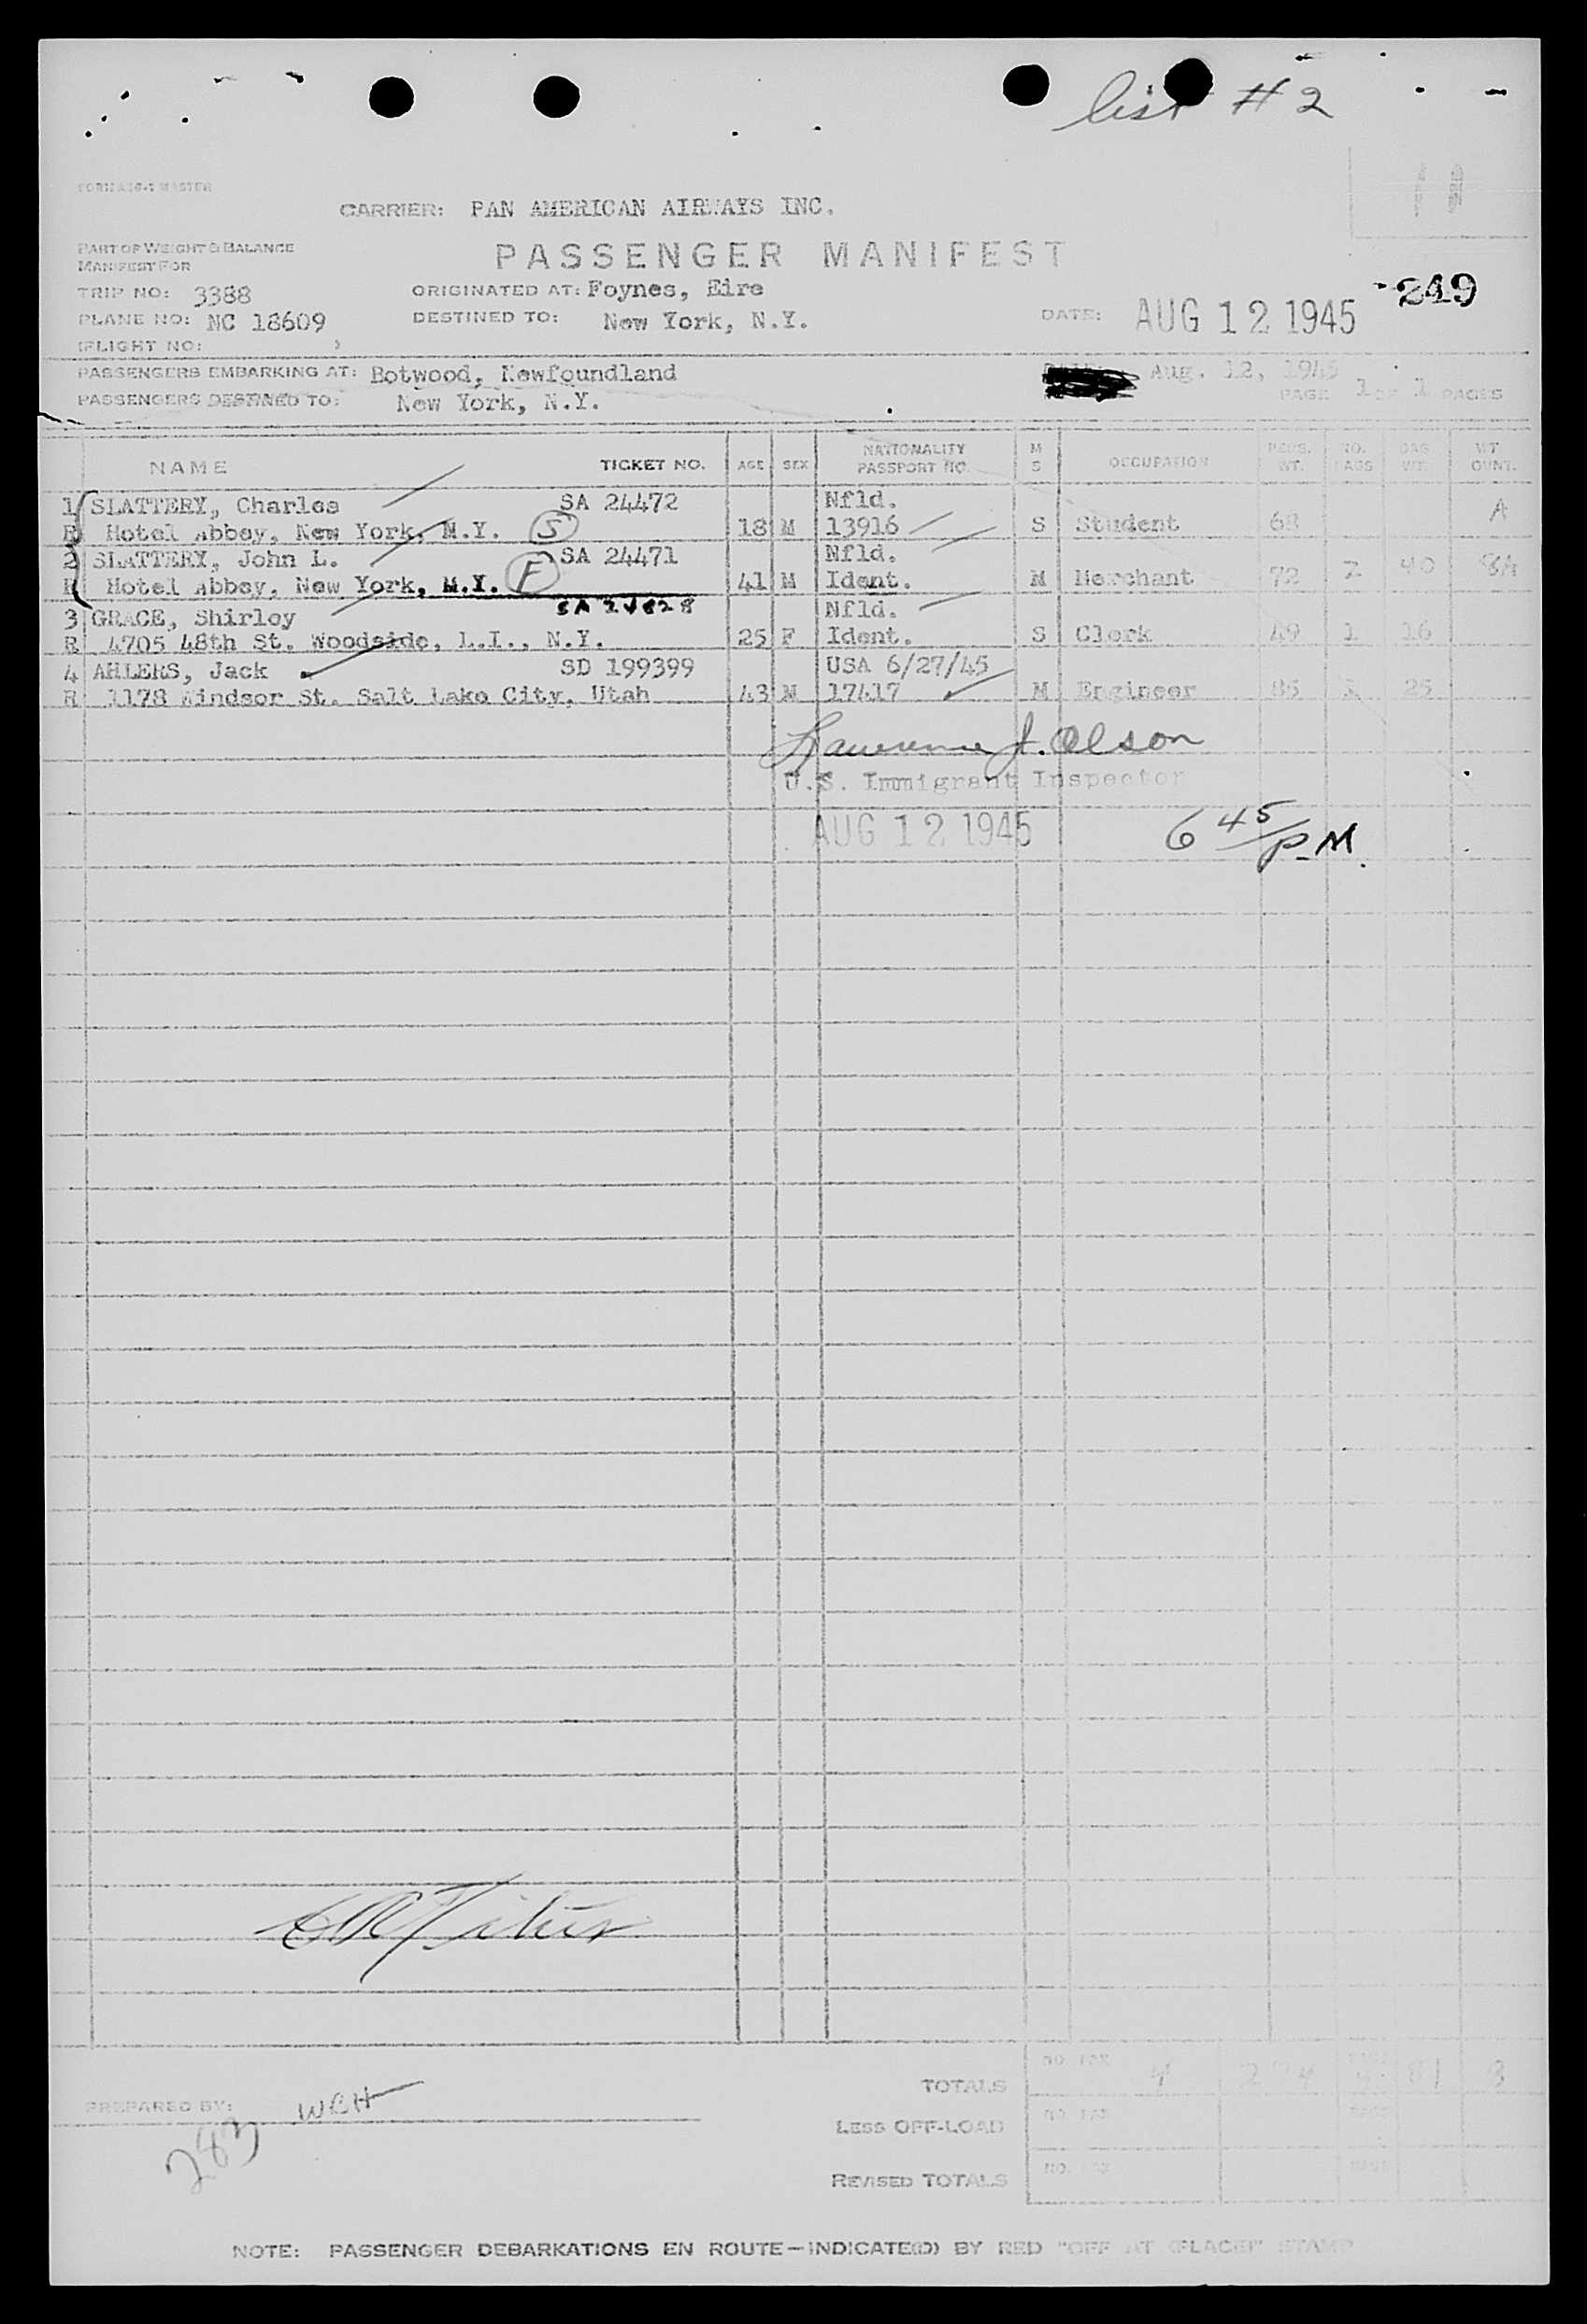 list #2
CARRIER: PAN AMERICAN AIRWAYS INC.
PART OF WEIGHT & BALANCE
MANIFEST FOR
PASSENGER MANIFEST
TRIP NO: 3388
ORIGINATED AT: Foynes, Eire
249
PLANE NO: NC 18609
DESTINED TO: New York, N.Y.
DATE: AUG 12 1945
(FLIGHT NO: )
PASSENGERS EMBARKING AT: Botwood, Newfoundland
Aug. 12, 1945
PASSENGERS DESTINED TO: New York, N.Y.
PAGE 1 OF 1 PAGES
NAME TICKET NO. AGE SEX NATIONALITY PASSPORT NO. M S OCCUPATION PERS. WT. NO. BAGS BAG WT. WT OVNT.
1 SLATTERY, Charles SA 24472 Nfld. A
R Hotel Abbey, New York, N.Y. S 18 M 13916 S Student 68
2 SLATTERY, John L. SA 24471 Nfld.
R Hotel Abbey, New York, N.Y. F 41 M Ident. M Merchant 72 2 40
3 GRACE, Shirley Nfld.
R 4705 48th St. Woodside, L.I., N.Y. 25 F Ident. S Clerk 49 1 16
4 AHLERS, Jack SD 199399 USA 6/27/45
R 1178 Windsor St. Salt Lake City, Utah 43 M 17417 M Engineer 85 25
Lawrence J. Olson
U.S. Immigrant Inspector
AUG 12 1945
6 45/P.M.
TOTALS 4 274 81 3
PREPARED BY: WCH
LESS OFF-LOAD
283
REVISED TOTALS
NOTE: PASSENGER DEBARKATIONS EN ROUTE—INDICATE(D) BY RED "OFF AT (PLACE)" STAMP